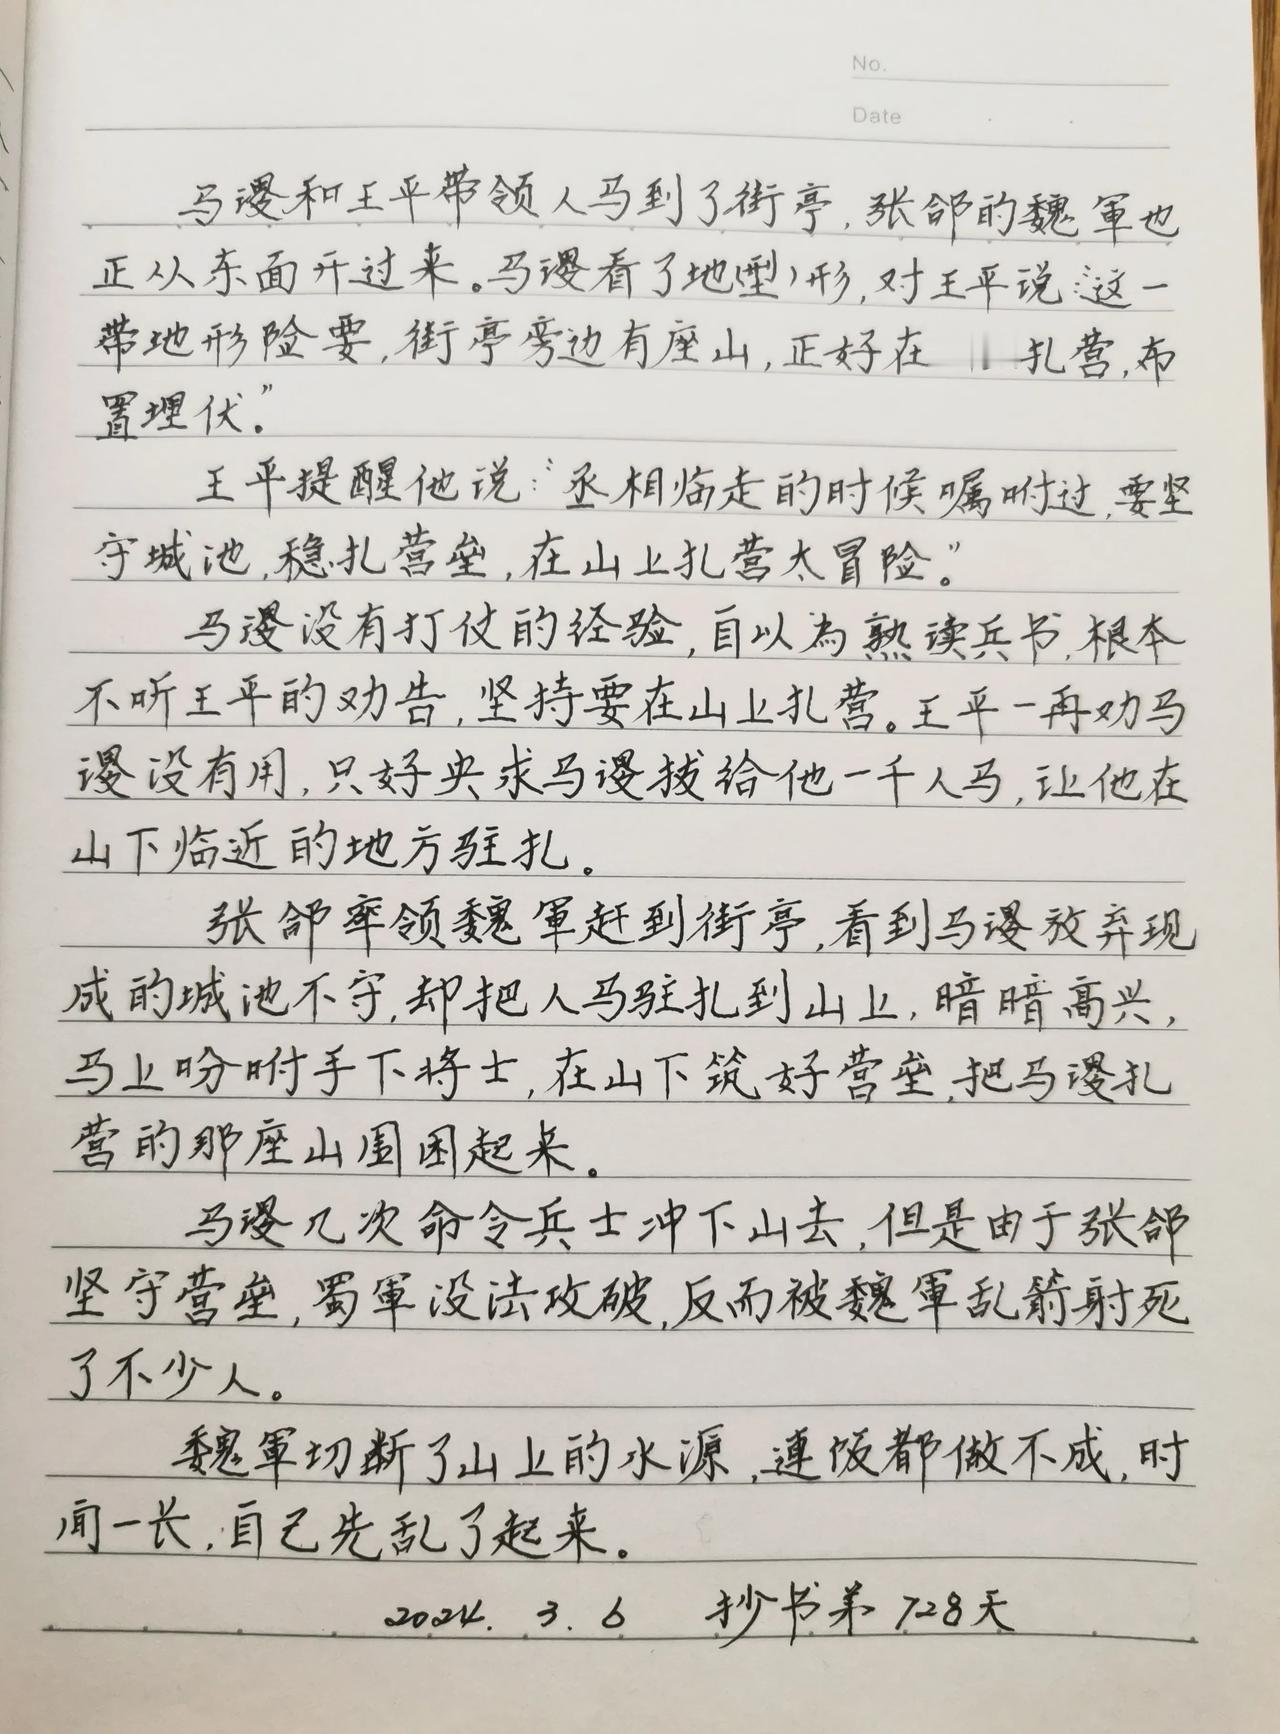 No.
Date
马谡和王平带领人马到了街亭,张郃的魏軍也
正从东面开过来。马谡看了地(型)形,对王平说:“这一
带地形险要,街亭旁边有座山,正好在 扎营,布
置埋伏。”
王平提醒他说:“丞相临走的时候嘱咐过,要坚
守城池,稳扎营垒,在山上扎营太冒险。”
马谡没有打仗的经验,自以為熟读兵书,根本
不听王平的劝告,坚持要在山上扎营。王平一再劝马
谡没有用,只好央求马谡拨给他一千人马,让他在
山下临近的地方驻扎。
张郃率领魏軍赶到街亭,看到马谡放弃现
成的城池不守,却把人马驻扎到山上,暗暗高兴,
马上吩咐手下将士,在山下筑好营垒,把马谡扎
营的那座山围困起来。
马谡几次命令兵士冲下山去,但是由于张郃
坚守营垒,蜀軍没法攻破,反而被魏軍乱箭射死
了不少人。
魏軍切断了山上的水源,連饭都做不成,时
间一长,自己先乱了起来。
2024. 3. 6 抄书第728天